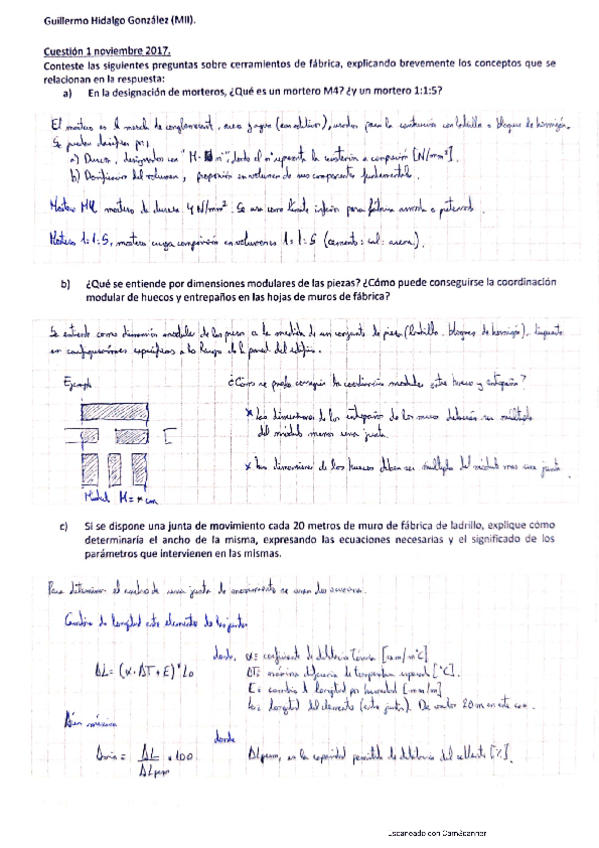 Guillermo Hidalgo González (MII).
Cuestión 1 noviembre 2017.
Conteste las siguientes preguntas sobre cerramientos de fábrica, explicando brevemente los conceptos que se
relacionan en la respuesta:
a) En la designación de morteros, ¿Qué es un mortero M4? ¿y un mortero 1:1:5?
El mortero es la mezcla de conglomerant, arena y agua (con aditivos), usados para la construcción con ladrillo o bloques de hormigón.
Se pueden designar por,
a) Dureza, designados con "M- n", donde el nº representa la resistencia a compresión [N/mm²].
b) Dosificación del volumen, proporción en volumen de sus componentes fundamentales.
Mortero M4 mortero de dureza 4 N/mm². Se usa como límite inferior para fábrica armada o pretensada.
Mortero 1:1:5, mortero cuya composición en volumenes 1:1:5 (cemento: cal: arena).
b) ¿Qué se entiende por dimensiones modulares de las piezas? ¿Cómo puede conseguirse la coordinación
modular de huecos y entrepaños en las hojas de muros de fábrica?
Se entiende como dimensión modular de las piezas a la medida de un conjunto de piezas (ladrillo, bloques de hormigón), dispuesto
en configuraciones específicas a lo largo de la pared del edificio.
Ejemplo
¿Cómo se puede conseguir la coordinación modular entre hueco y entrepaño?
* Las dimensiones de los entrepaños de los muros deberán ser múltiplo
del módulo menos una junta.
* Las dimensiones de los huecos deben ser múltiplo del módulo mas una junta.
M = n cm
c) Si se dispone una junta de movimiento cada 20 metros de muro de fábrica de ladrillo, explique cómo
determinaría el ancho de la misma, expresando las ecuaciones necesarias y el significado de los
parámetros que intervienen en las mismas.
Para determinar el ancho de una junta de movimiento se usan dos ecuaciones.
Cambio de longitud entre elementos de las juntas
ΔL = (α · ΔT + E) * L₀
donde, α = coeficiente de dilatación térmica [mm/m°C]
ΔT = máxima diferencia de temperatura esperada [°C].
E = cambio de longitud por humedad [mm/m]
L₀ = longitud del elemento (entre juntas). De valor 20 m en este caso.
mínim = ΔL / ΔLperm x 100
donde
ΔLperm, es la capacidad permitida de dilatación del sellante [%].
Escaneado con CamScanner